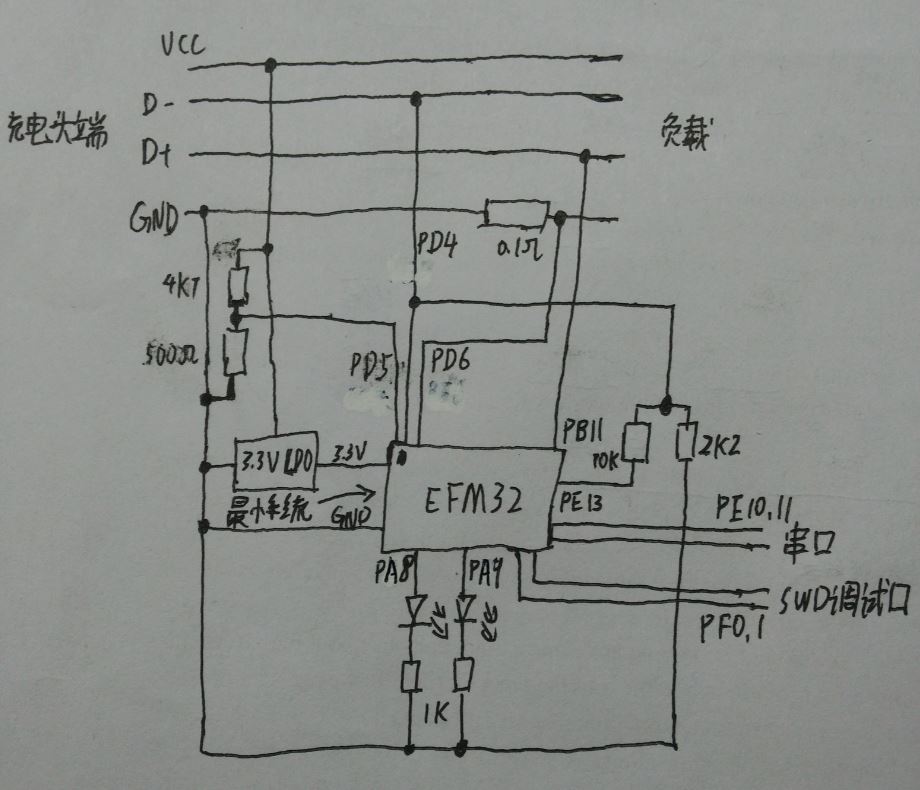 VCC
D-
充电头端
D+
负载
GND
PD4
0.1Ω
4K7
500Ω
PD5
PD6
PB11
10K
2K2
3.3V LDO
3.3V
EFM32
PE13
最小系统
GND
PE10,11
串口
PA8
PA9
SWD调试口
PF0,1
1K